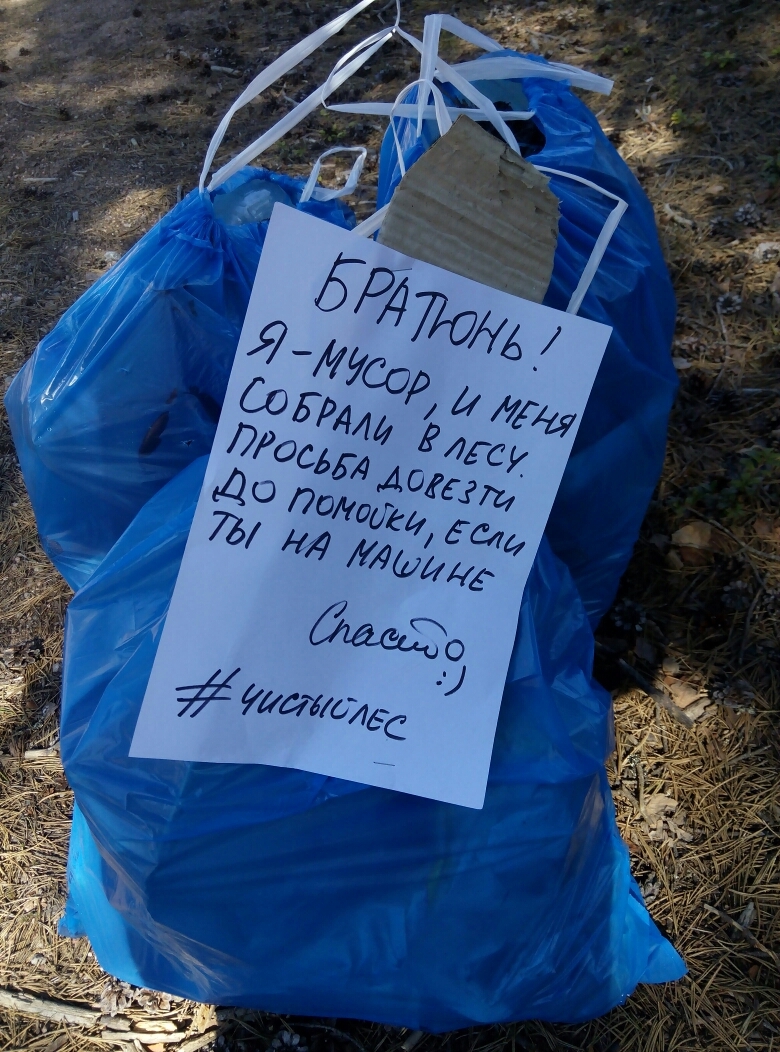 БРАТЮНЬ!
Я - МУСОР, И МЕНЯ
СОБРАЛИ В ЛЕСУ.
ПРОСЬБА ДОВЕЗТИ
ДО ПОМОЙКИ, ЕСЛИ
ТЫ НА МАШИНЕ
Спасибо
:)
#ЧИСТЫЙЛЕС